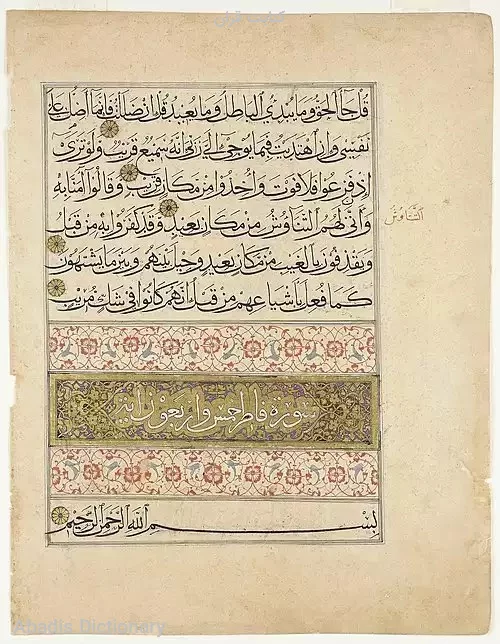 قل جاء الحق وما يبدئ الباطل وما يعيد قل ان ضللت فانما اضل على
نفسي وان اهتديت فبما يوحي الي ربي انه سميع قريب ولو ترى
اذ فزعوا فلا فوت واخذوا من مكان قريب وقالوا امنا به
وانى لهم التناوش من مكان بعيد وقد كفروا به من قبل
التناوش
ويقذفون بالغيب من مكان بعيد وحيل بينهم وبين ما يشتهون
كما فعل باشياعهم من قبل انهم كانوا في شك مريب
سورة فاطر خمس واربعون اية
بسم الله الرحمن الرحيم
Abadis Dictionary